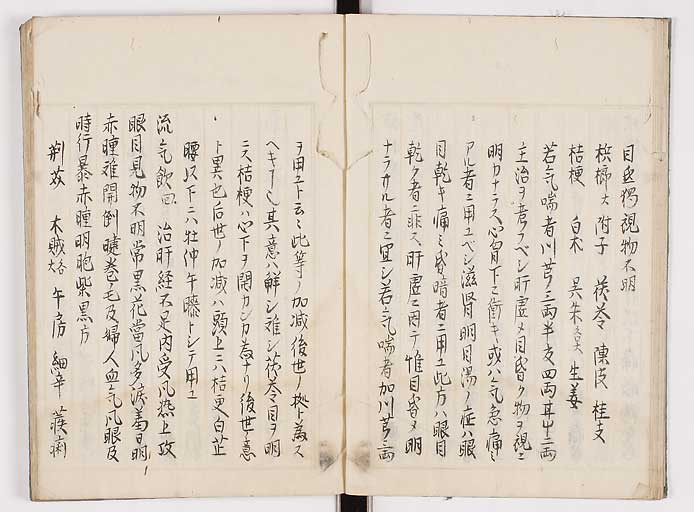 目昏視物不明
檳榔大 附子 茯苓 陳皮 桂支
桔梗 白朮 呉朱各央 生姜
若气喘者川芎三両半夏四両耳十二両
主治ヲ考フベシ肝虚メ目昏ク物ヲ視ニ
明カナラス心胷下ニ衝キ或ハ气急痛ミ
アル者ニ用ユベシ滋腎明目湯ノ症ハ眼
目乾キ痛ミ昏暗者ニ用ユ此方ハ眼目
乾ク者ニ非ス肝虚ニ因テ惟目昏メ明
ナラサル者ニ宜シ若气喘者加川芎三両
ヲ用ユト云ミ此等ノ加減後世ノ拠ト為ス
ヘキ其意ハ觧シ難シ茯苓目ヲ明
ニス桔梗ハ心下ヲ開カシカ為ナリ後世ノ意
ト異也后世ノ加减ハ頭上ニハ桔更白芷
腰以下ニハ牡仲午膝トシテ用ユ
流气飲 治肝経不足内受风热上攻
眼目見物不明常黒花當风多涙羞日明
赤瞳难開倒睫巻毛及婦人血气风眼及
時行暴赤瞳明胞紫黒方
荊芥 木賊各 午房 細辛 蒺痢